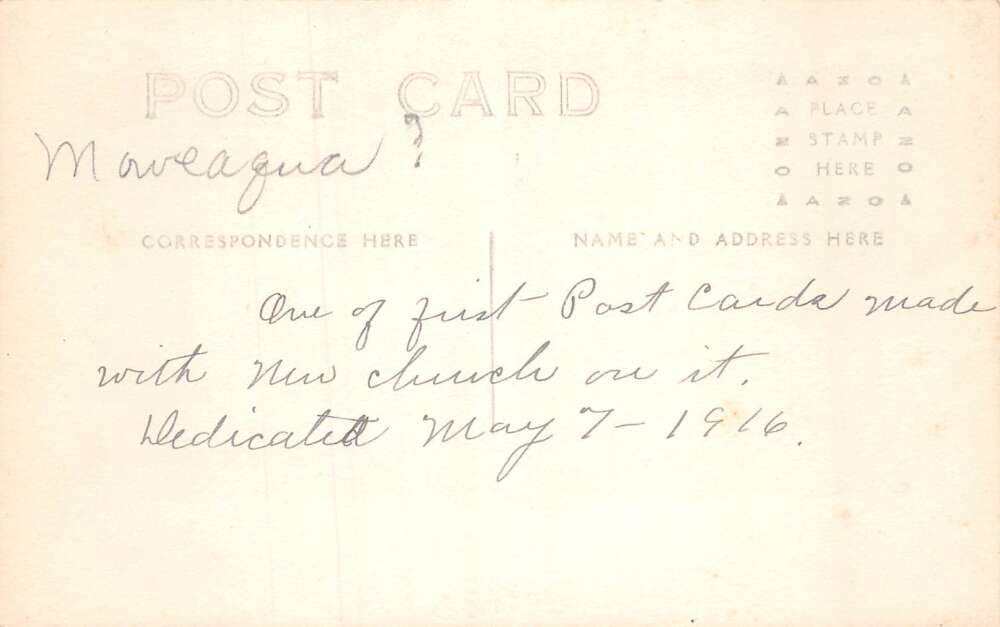 POST CARD
Moweaqua ?
A Z O
A PLACE A
Z STAMP Z
O HERE O
A Z O
CORRESPONDENCE HERE
NAME AND ADDRESS HERE
One of first Post Cards made
with New church on it.
Dedicated May 7 - 1916.